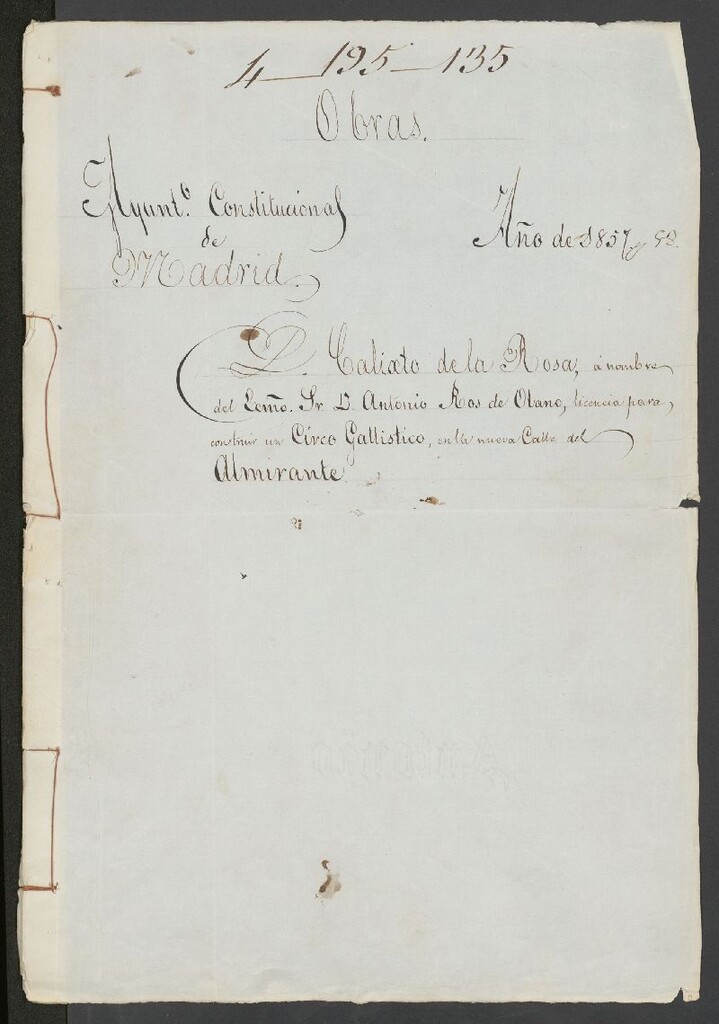 4—195—135
Obras.
Ayunt.º Constitucional
de
Madrid.
Año de 1857 y 58.
D. Calixto de la Rosa, á nombre
del Exmo. Sr. D. Antonio Ros de Olano, licencia para
construir un Circo Gallistico, en la nueva Calle del
Almirante.